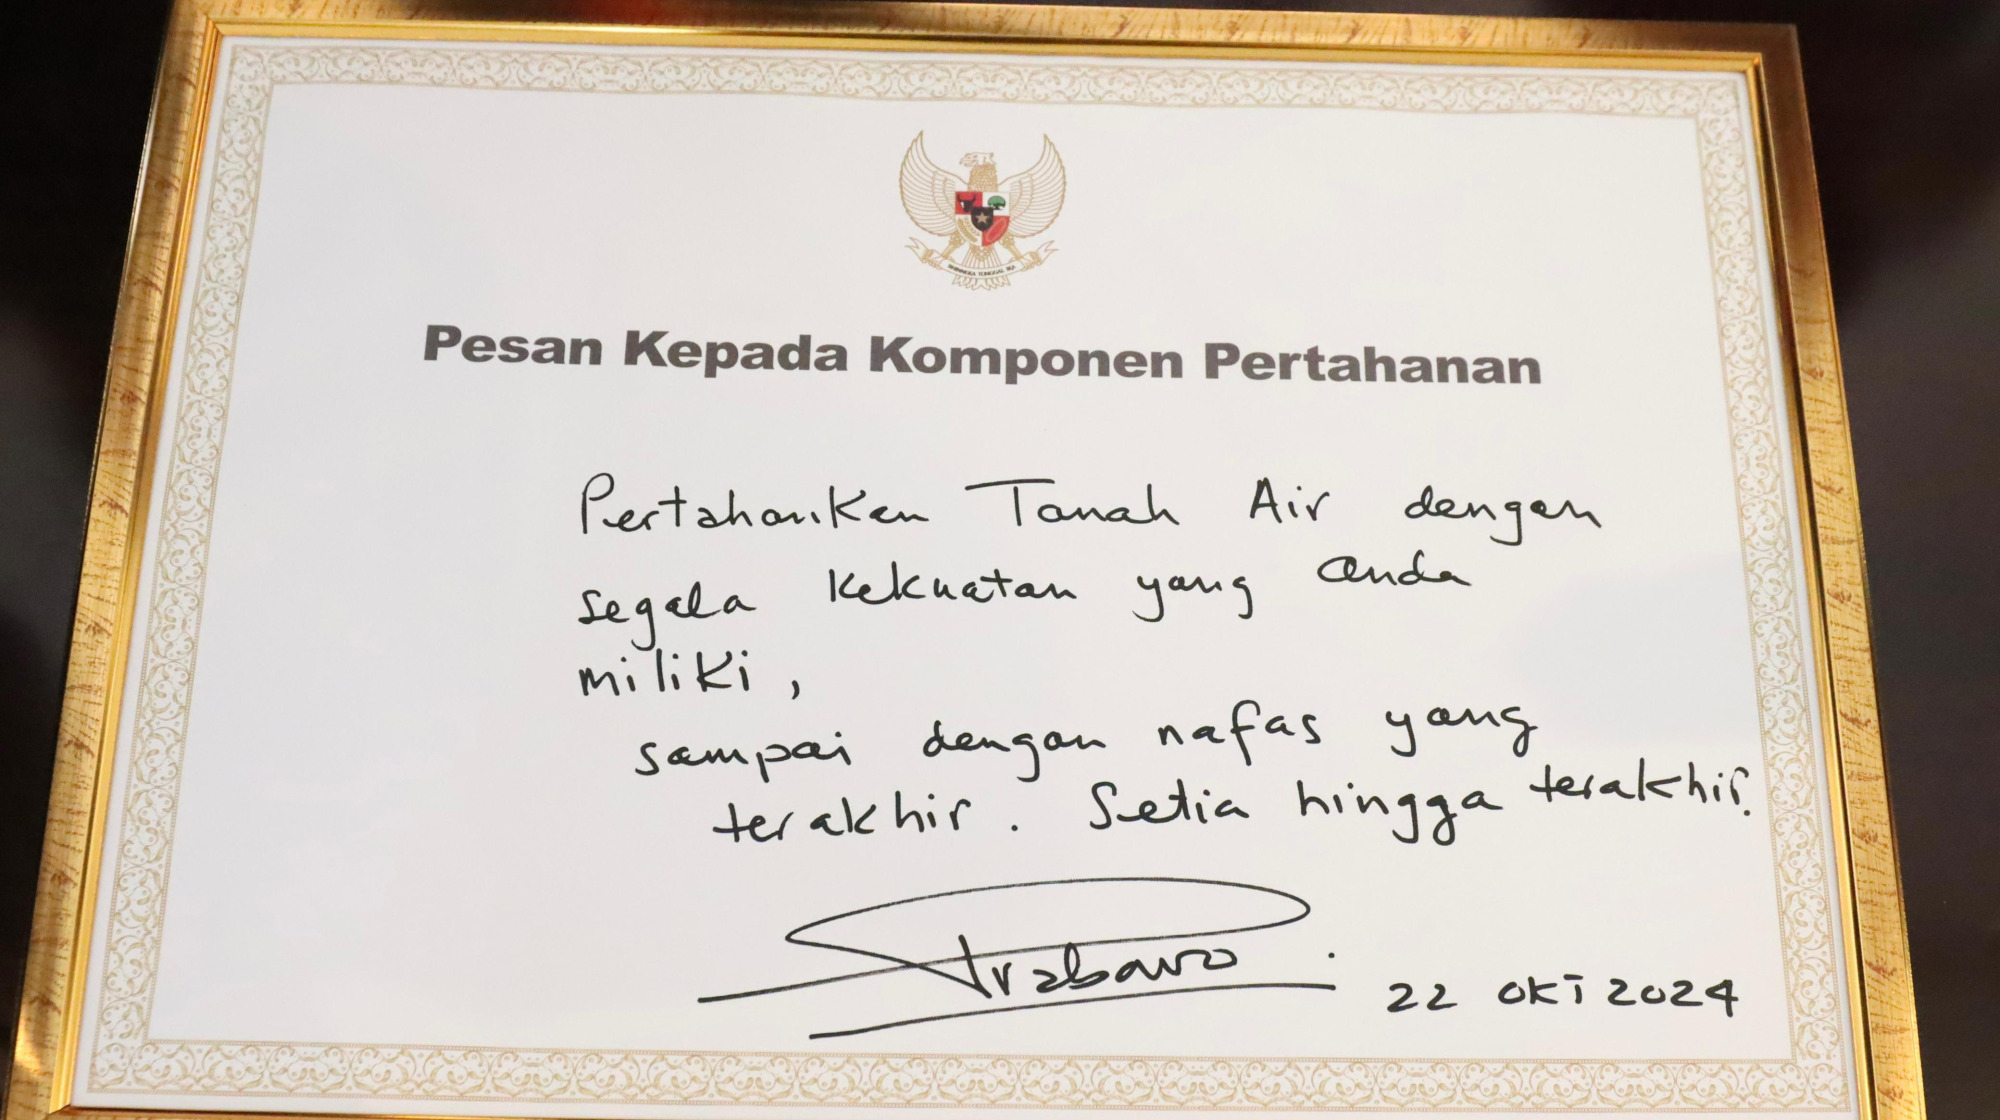 BHINNEKA TUNGGAL IKA
Pesan Kepada Komponen Pertahanan
Pertahankan Tanah Air dengan
segala kekuatan yang anda
miliki,
sampai dengan nafas yang
terakhir. Setia hingga terakhir.
Prabowo
22 OKT 2024